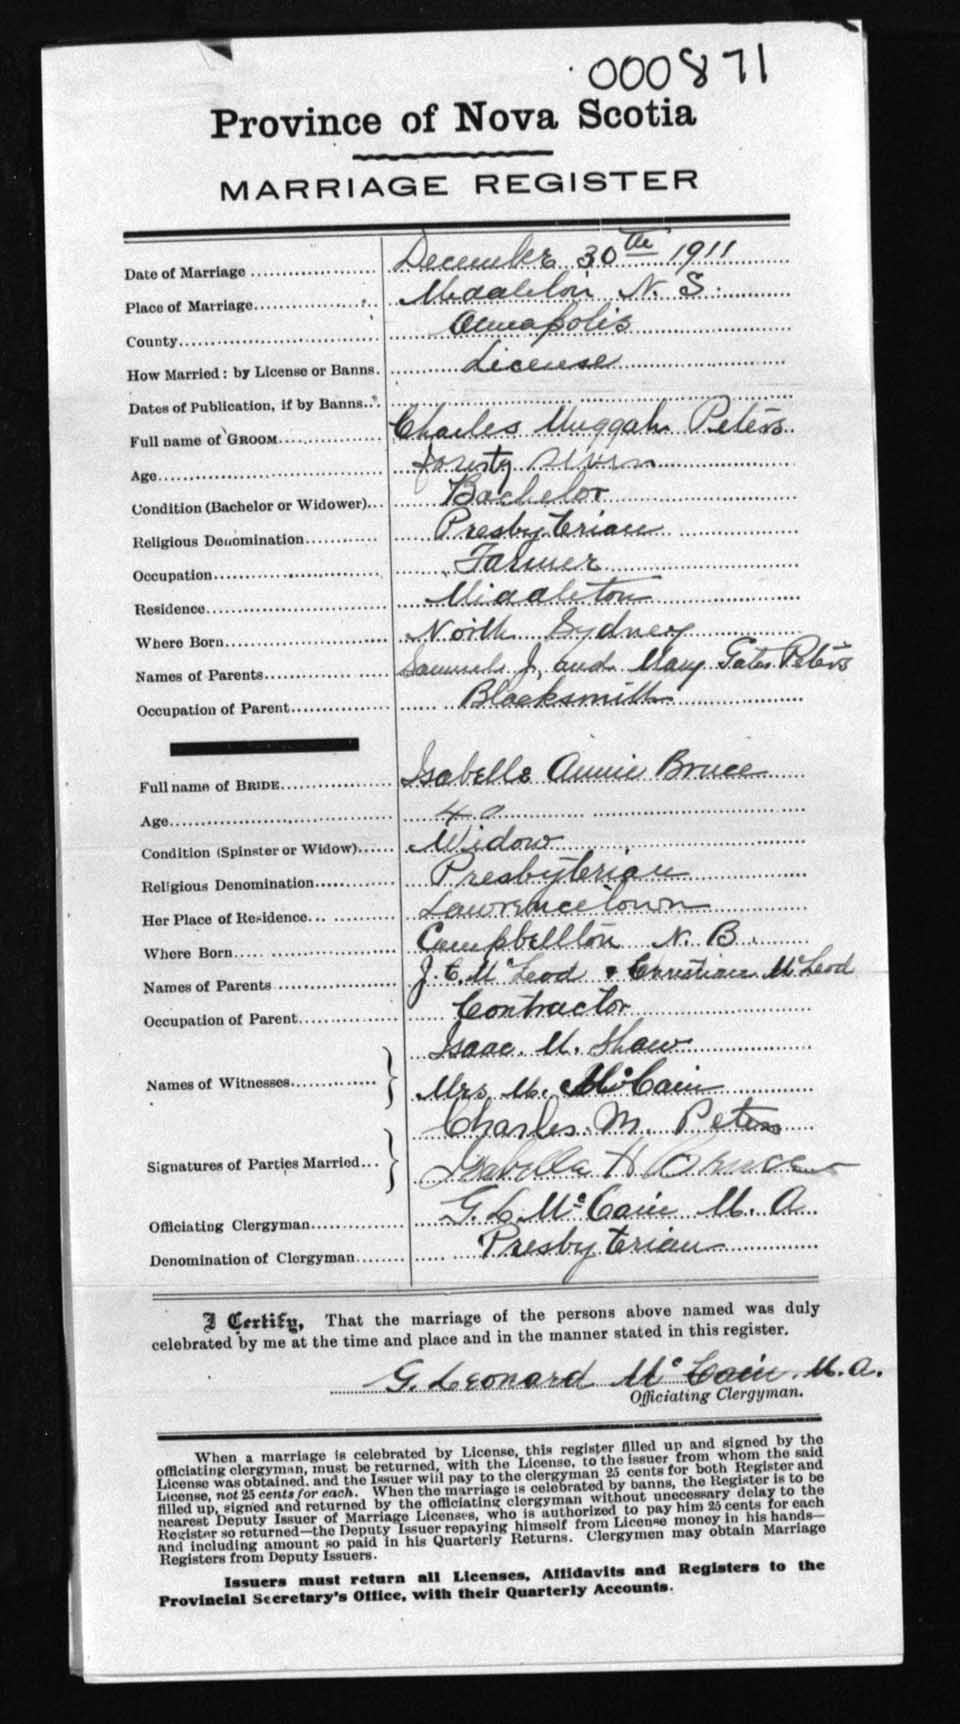 000871
Province of Nova Scotia
MARRIAGE REGISTER
Date of Marriage December 30th 1911
Place of Marriage Middleton N. S.
County Annapolis
How Married: by License or Banns. License
Dates of Publication, if by Banns
Full name of GROOM Charles Muggah Peters
Age forty seven
Condition (Bachelor or Widower) Bachelor
Religious Denomination Presbyterian
Occupation Farmer
Residence Middleton
Where Born North Sydney
Names of Parents Samuel J. and Mary Peters
Occupation of Parent Blacksmith
Full name of BRIDE Isabelle Annie Bruce
Age 40
Condition (Spinster or Widow) Widow
Religious Denomination Presbyterian
Her Place of Residence Lawrencetown
Where Born Campbellton N. B.
Names of Parents J. C. McLeod & Christian McLeod
Occupation of Parent Contractor
Isaac M. Shaw
Names of Witnesses
Mrs M. McCain
Charles M. Peters
Signatures of Parties Married
Isabella Bruce
Officiating Clergyman G. L. McCain M. A
Denomination of Clergyman Presbyterian
I Certify, That the marriage of the persons above named was duly
celebrated by me at the time and place and in the manner stated in this register.
G. Leonard McCain. M.A.
Officiating Clergyman.
When a marriage is celebrated by License, this register filled up and signed by the
officiating clergyman, must be returned, with the License, to the issuer from whom the said
License was obtained, and the Issuer will pay to the clergyman 25 cents for both Register and
License, not 25 cents for each. When the marriage is celebrated by banns, the Register is to be
filled up, signed and returned by the officiating clergyman without unnecessary delay to the
nearest Deputy Issuer of Marriage Licenses, who is authorized to pay him 25 cents for each
Register so returned—the Deputy Issuer repaying himself from License money in his hands—
and including amount so paid in his Quarterly Returns. Clergymen may obtain Marriage
Registers from Deputy Issuers.
Issuers must return all Licenses, Affidavits and Registers to the
Provincial Secretary's Office, with their Quarterly Accounts.